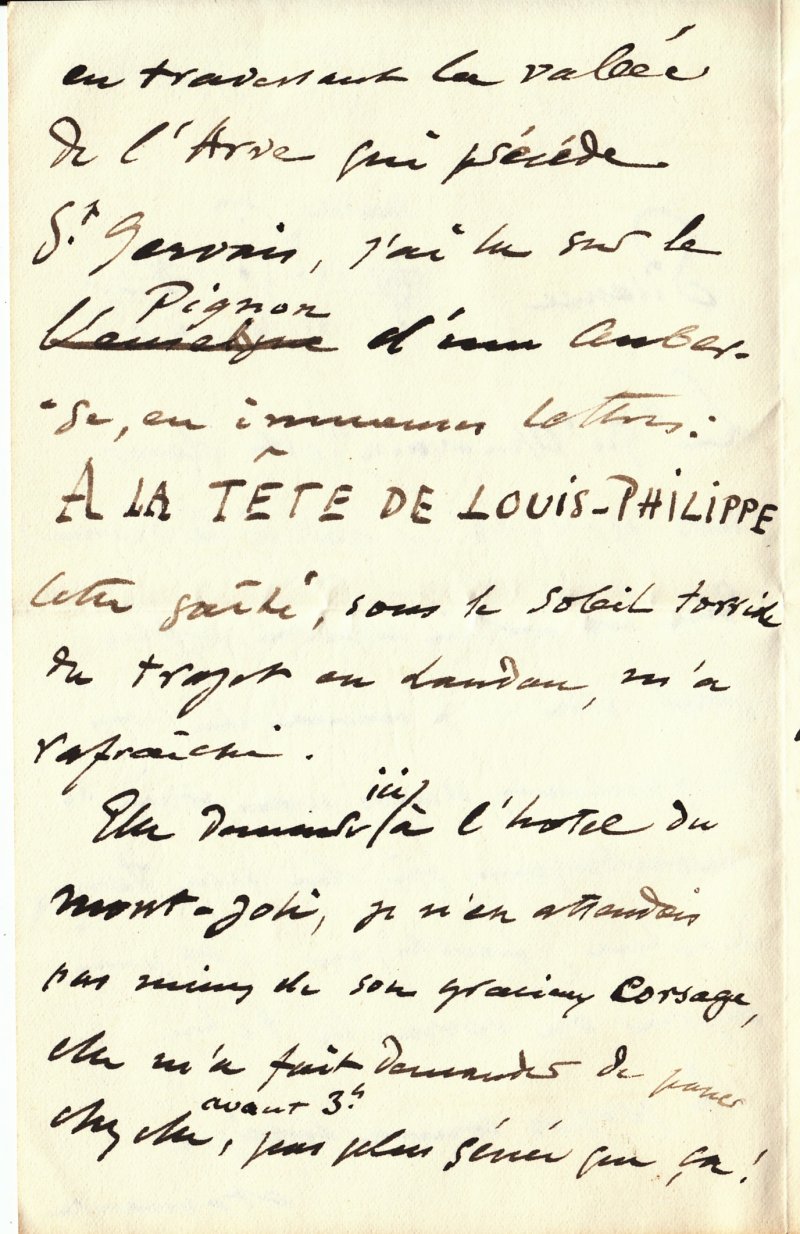 en traversant la vallée
de l'Arve qui précède
St Gervais, j'ai lu sur le
Pignon
d'une Auber-
-ge, en immenses lettres:
A LA TÊTE DE LOUIS-PHILIPPE
cette gaîté, sous le soleil torride
du trajet en Landau, m'a
rafraîchi.
ici
Elle à l'hotel du
mont-Joli, je n'en attendais
pas moins de son gracieux Corsage,
elle m'a fait demander de passer
avant 3h.
chez elle, pas plus gênée que ça!